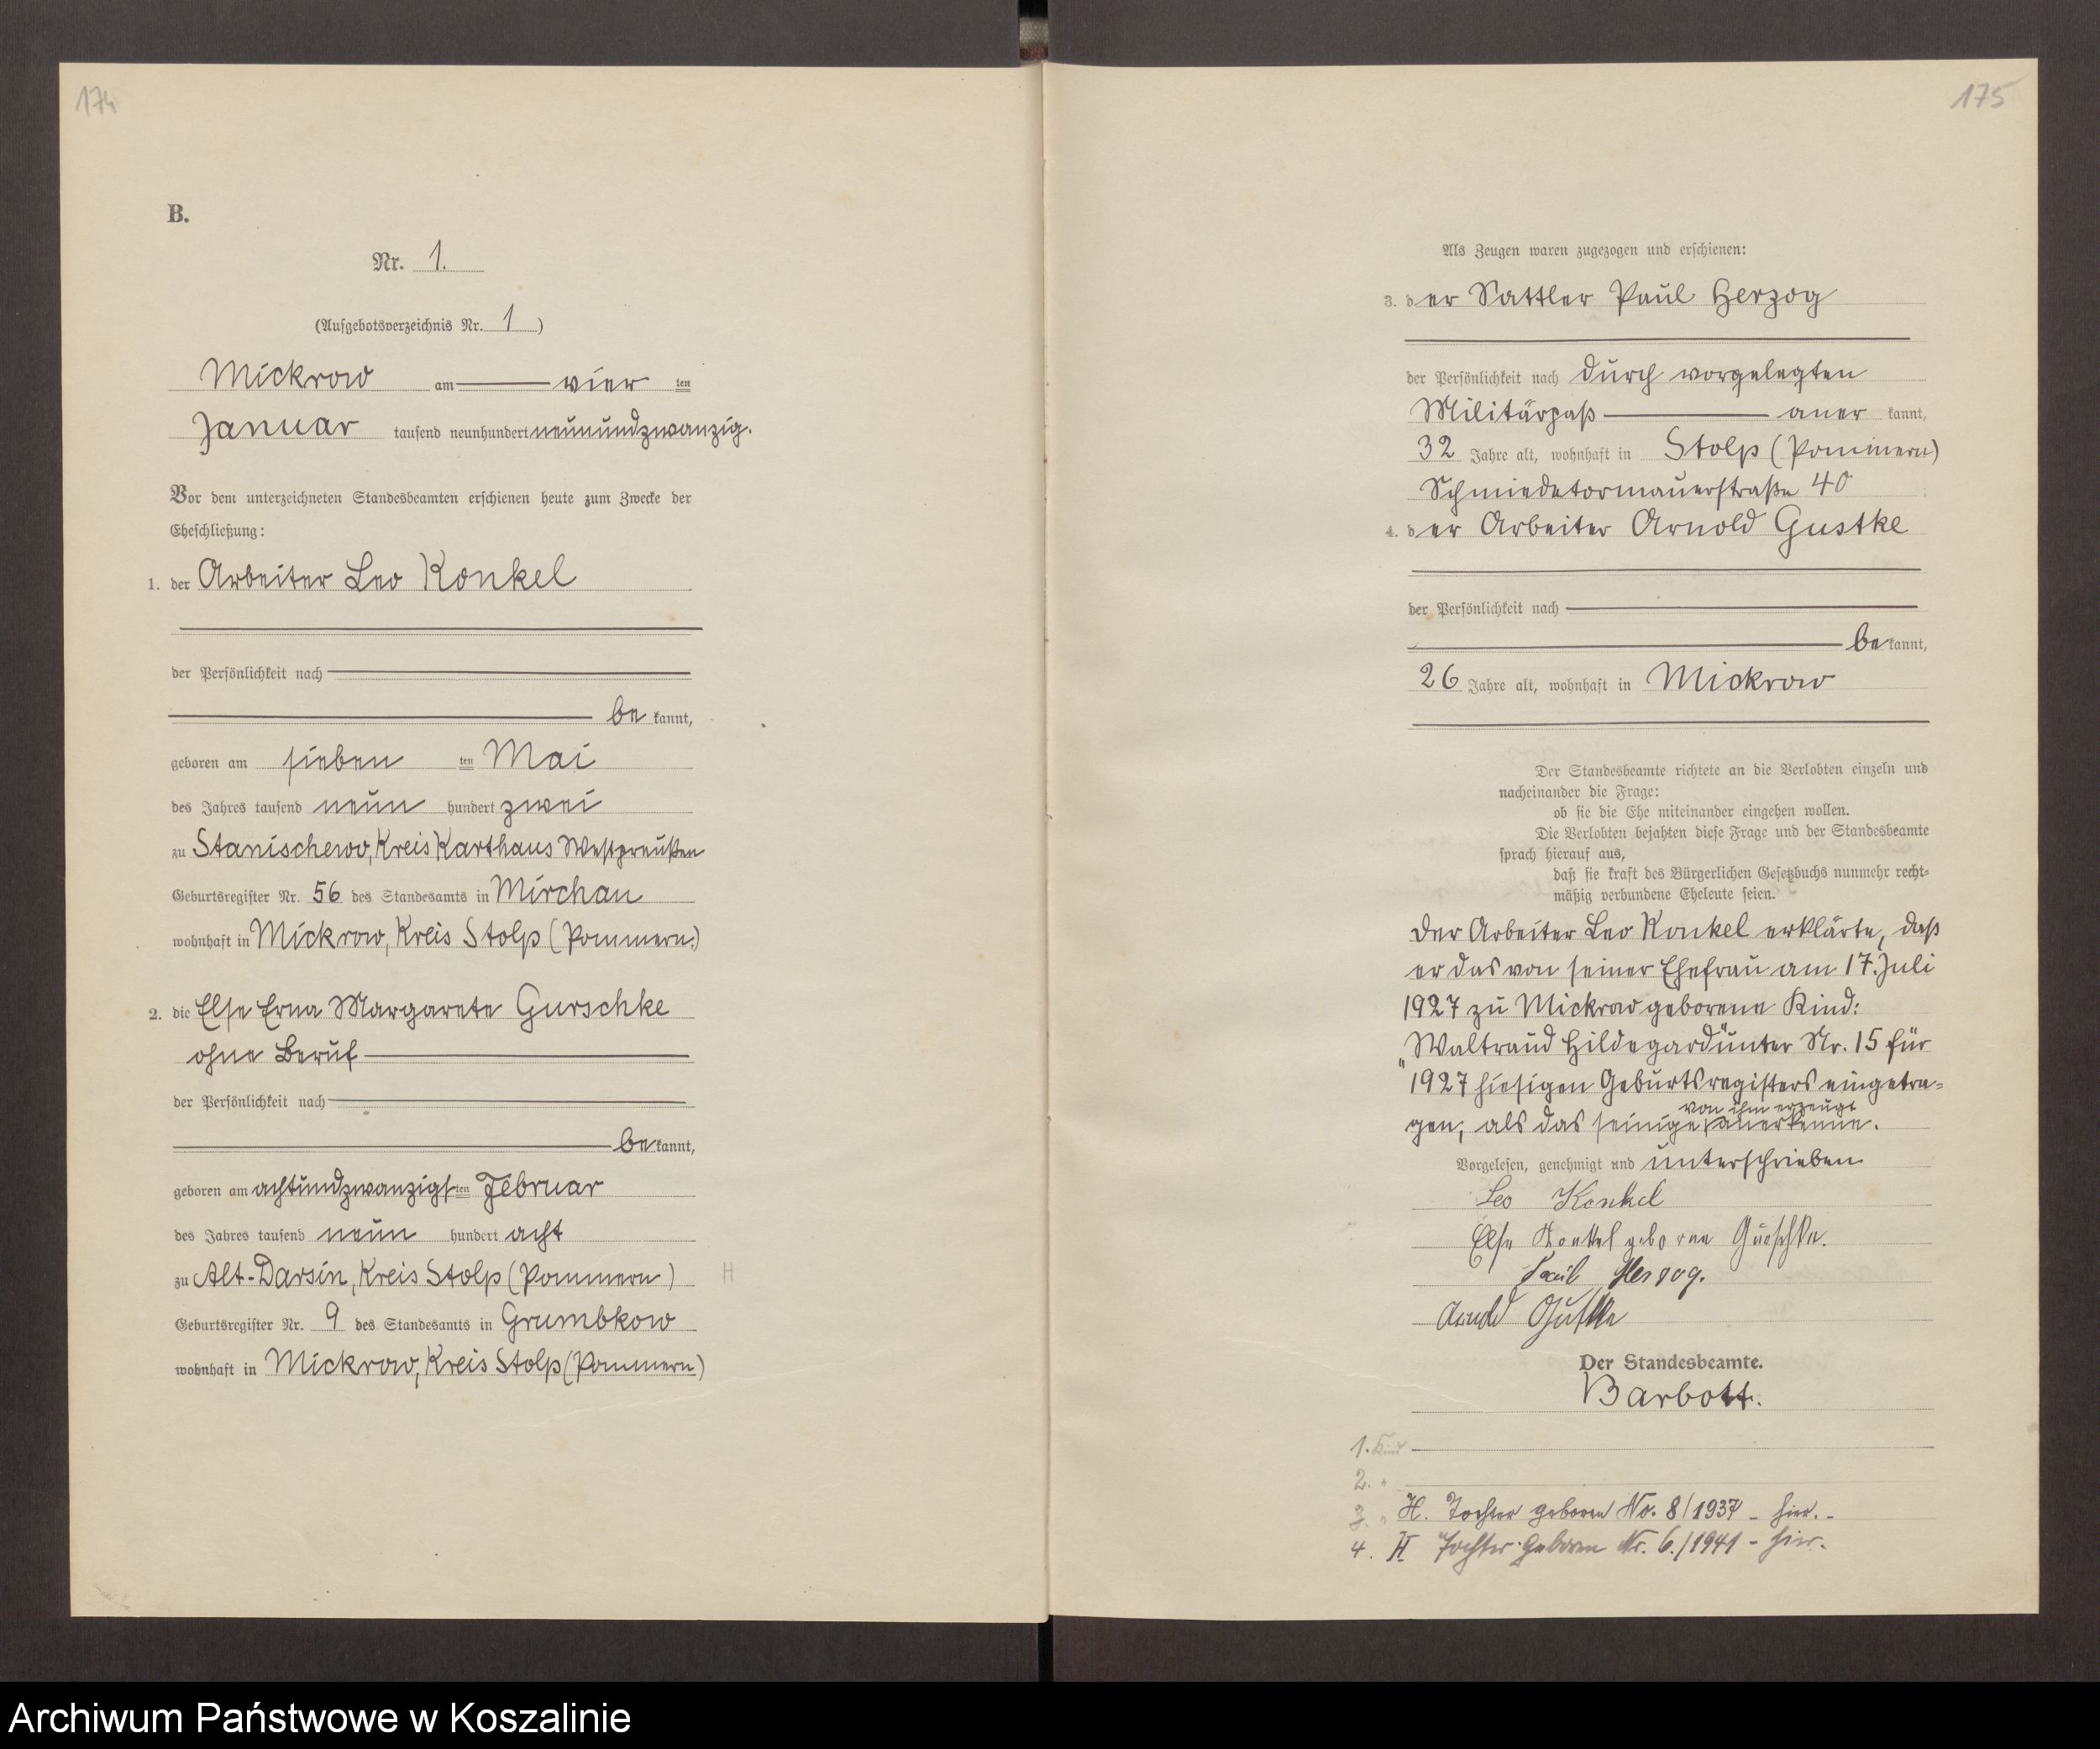 174
B.
Nr. 1.
(Aufgebotsverzeichnis Nr. 1)
Mickrow am vier ten
Januar tausend neunhundert neunundzwanzig.
Vor dem unterzeichneten Standesbeamten erschienen heute zum Zwecke der
Eheschließung:
1. der Arbeiter Leo Konkel
der Persönlichkeit nach
be kannt,
geboren am sieben ten Mai
des Jahres tausend neun hundert zwei
zu Stanischewo, Kreis Karthaus Westpreußen
Geburtsregister Nr. 56 des Standesamts in Mirchau
wohnhaft in Mickrow, Kreis Stolp (Pommern)
2. die Else Erna Margarete Gurschke
ohne Beruf
der Persönlichkeit nach
be kannt,
geboren am achtundzwanzigsten Februar
des Jahres tausend neun hundert acht
zu Alt-Darsin, Kreis Stolp (Pommern)
H
Geburtsregister Nr. 9 des Standesamts in Grumbkow
wohnhaft in Mickrow, Kreis Stolp (Pommern)
175
Als Zeugen waren zugezogen und erschienen:
3. der Sattler Paul Herzog
der Persönlichkeit nach durch vorgelegten
Militärpaß aner kannt,
32 Jahre alt, wohnhaft in Stolp (Pommern)
Schmiedetormauerstraße 40
4. der Arbeiter Arnold Gustke
der Persönlichkeit nach
be kannt,
26 Jahre alt, wohnhaft in Mickrow
Der Standesbeamte richtete an die Verlobten einzeln und
nacheinander die Frage:
ob sie die Ehe miteinander eingehen wollen.
Die Verlobten bejahten diese Frage und der Standesbeamte
sprach hierauf aus,
daß sie kraft des Bürgerlichen Gesetzbuchs nunmehr recht-
mäßig verbundene Eheleute seien.
Der Arbeiter Leo Konkel erklärte, daß
er das von seiner Ehefrau am 17. Juli
1927 zu Mickrow geborene Kind:
"Waltraud Hildegard" unter Nr. 15 für
1927 hiesigen Geburtsregisters eingetra-
von ihm erzeugt
gen, als das seinige anerkenne.
Vorgelesen, genehmigt und unterschrieben
Leo Konkel
Else Konkel geborene Gurschke.
Paul Herzog.
Arnold Gustke
Der Standesbeamte.
Barbott.
1. Kind
2. "
3. " H. Tochter geboren No. 8/1937 - hier. -
4. H Tochter geboren Nr. 6./1941 - hier.
Archiwum Państwowe w Koszalinie